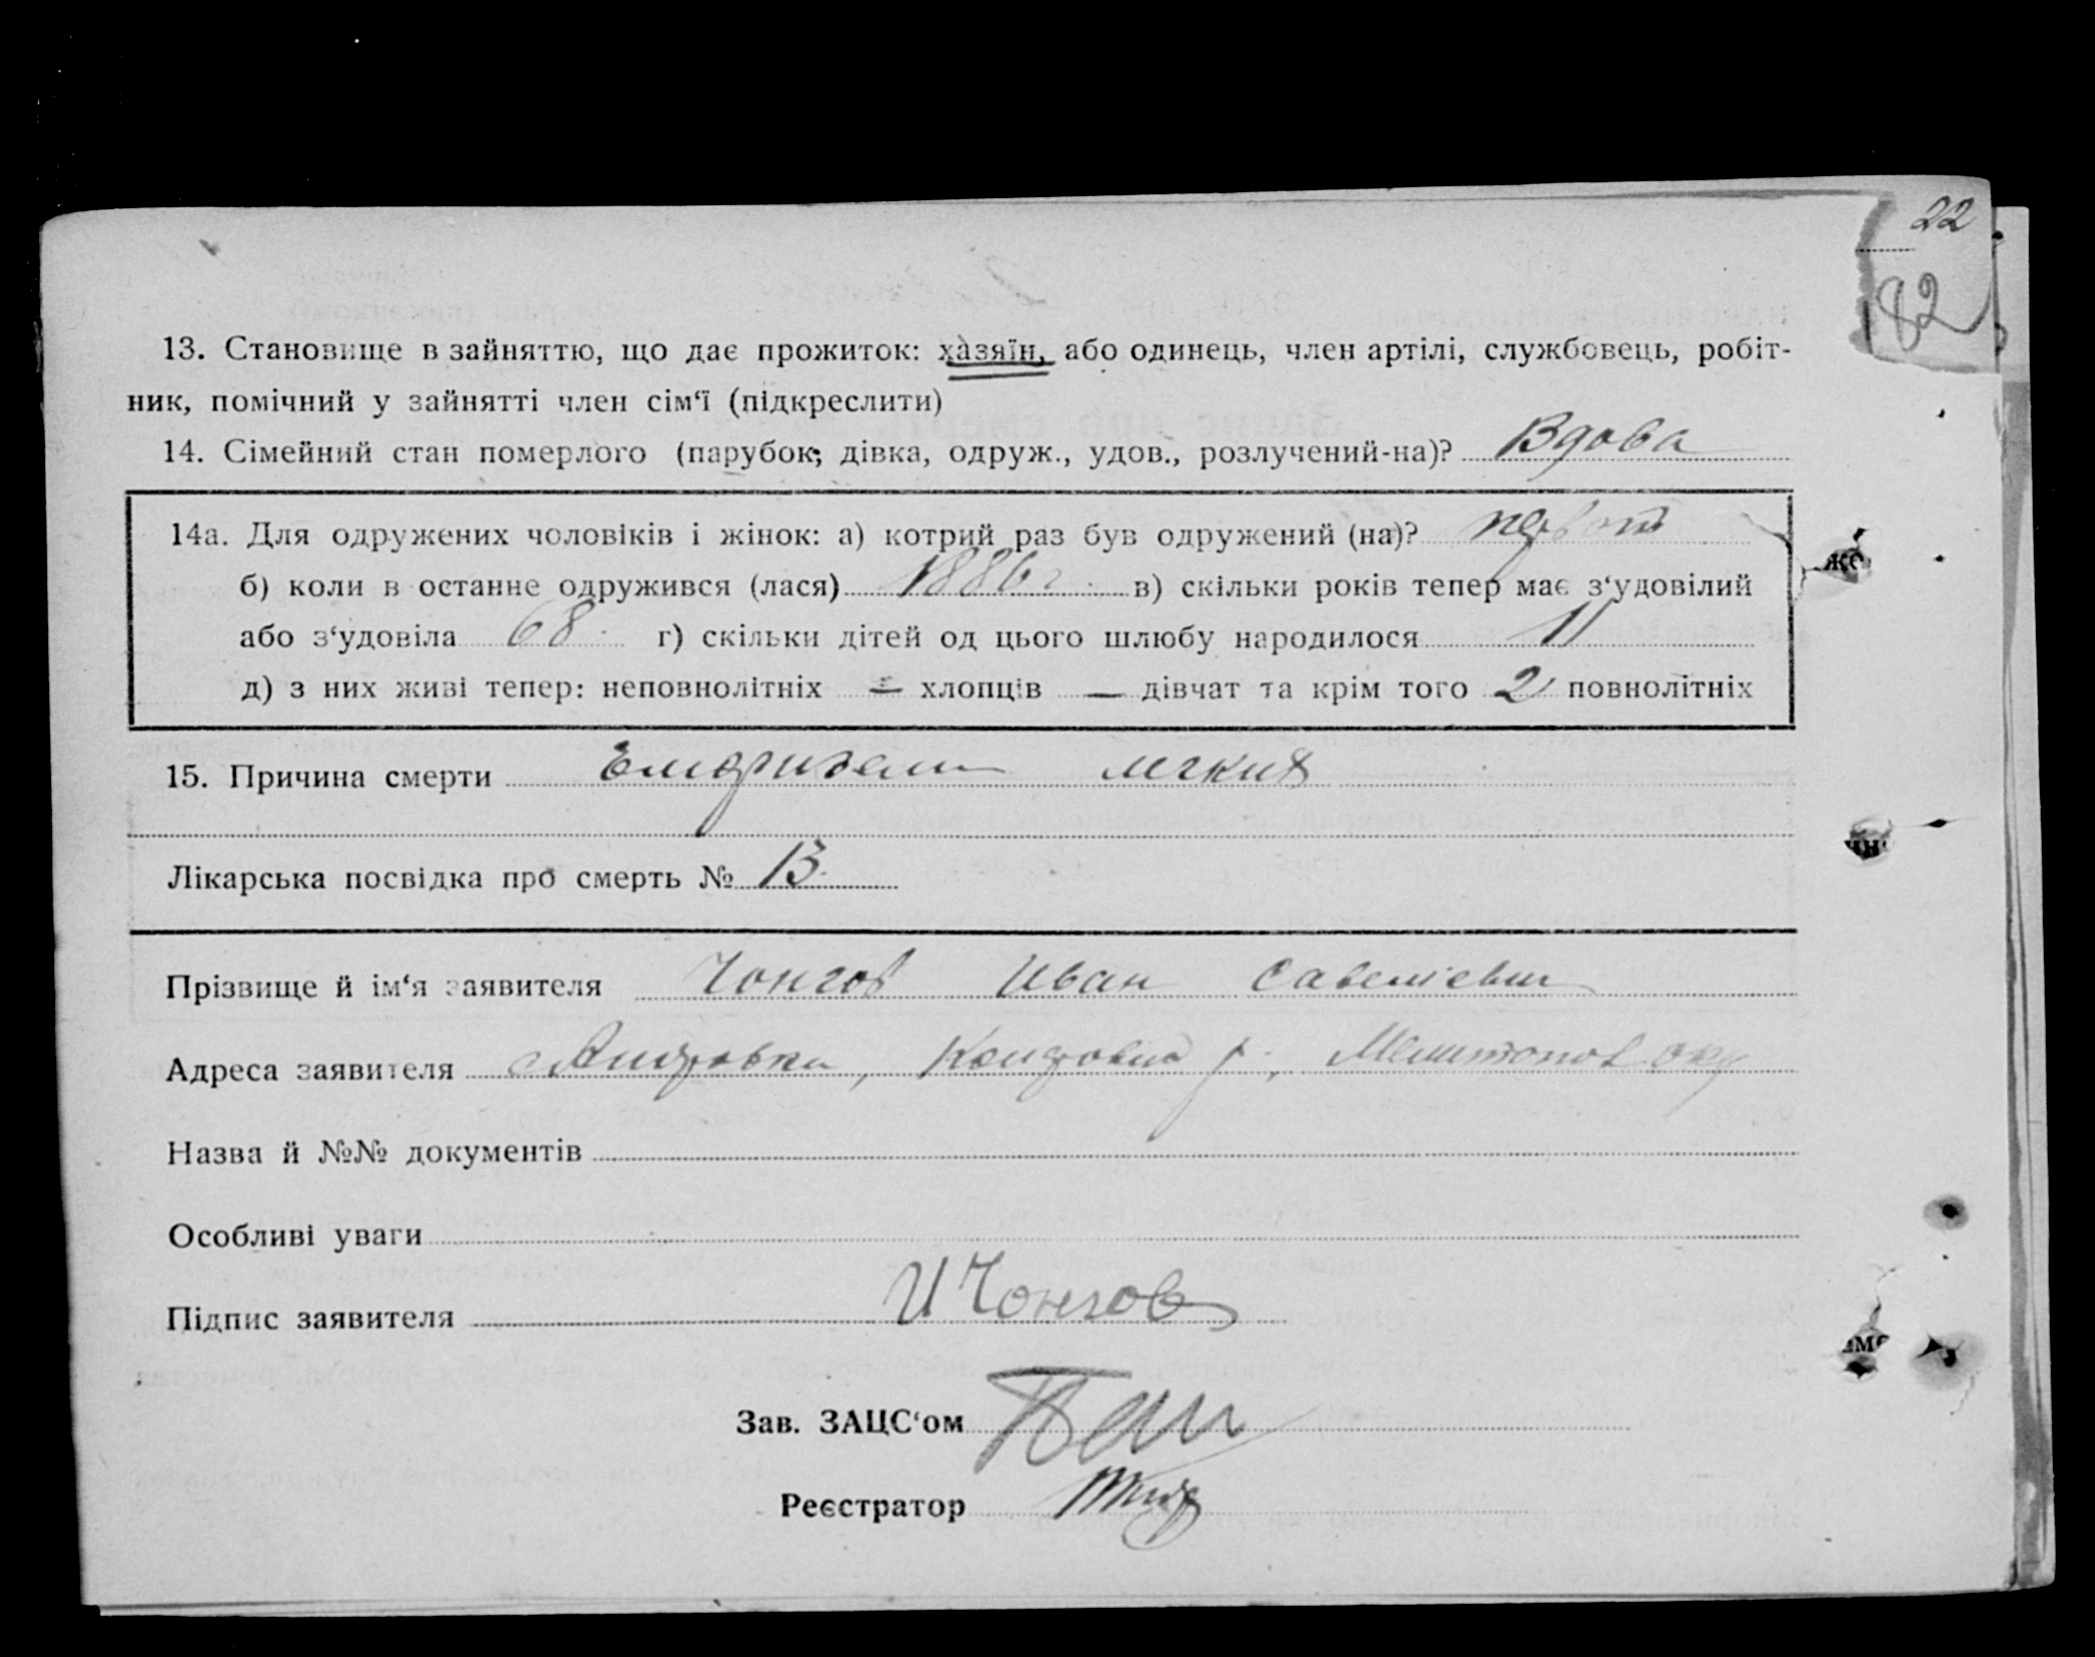 22
82
13. Становище в зайняттю, що дає прожиток: хазяїн, або одинець, член артілі, службовець, робіт-
ник, помічний у зайнятті член сім‘ї (підкреслити)
14. Сімейний стан померлого (парубок, дівка, одруж., удов., розлучений-на)? Вдова
14а. Для одружених чоловіків і жінок: а) котрий раз був одружений (на)?
б) коли в останнє одружився (лася) 1886 г. в) скільки років тепер має з‘удовілий
або з‘удовіла 68. г) скільки дітей од цього шлюбу народилося 11
д) з них живі тепер: неповнолітніх — хлопців — дівчат та крім того 2 повнолітніх
15. Причина смерти Емфизема легких
Лікарська посвідка про смерть № 13.
Прізвище й ім‘я заявителя Чонгов Иван Савелієвич
Адреса заявителя
Назва й №№ документів
Особливі уваги
Підпис заявителя И Чонгов
Зав. ЗАЦС‘ом
Реєстратор